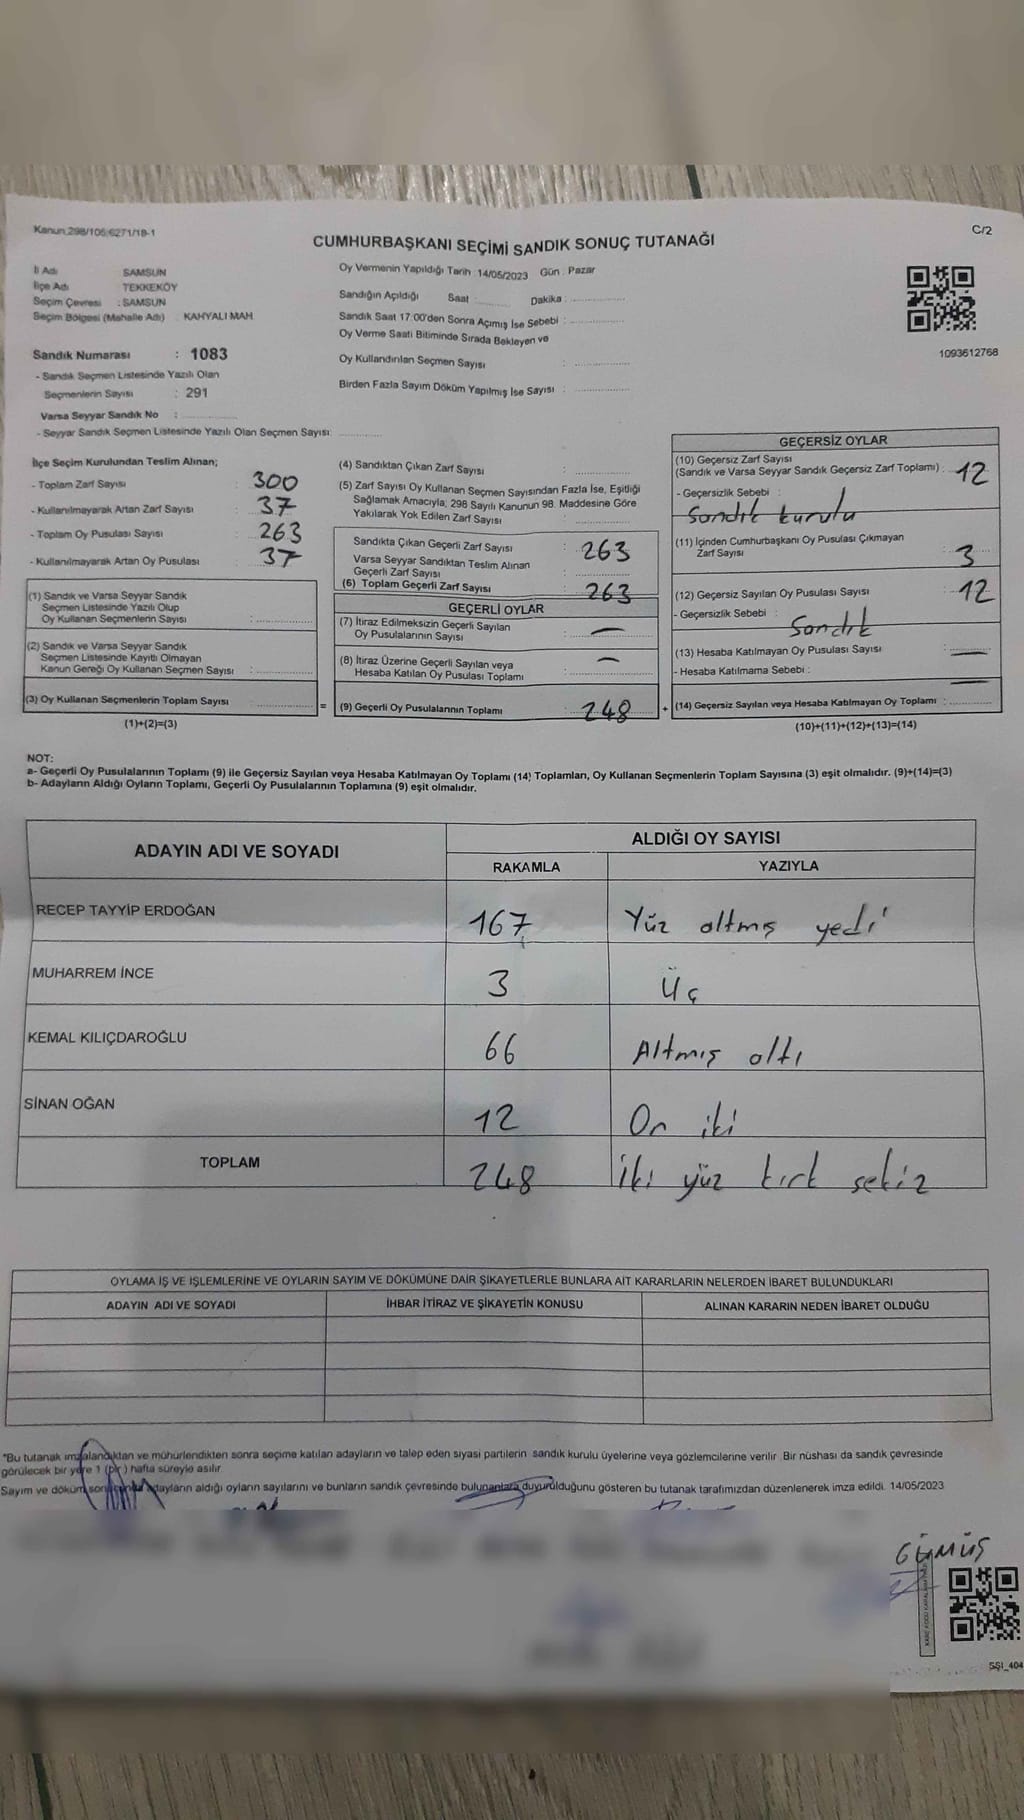 Kanun;298/105;6271/18-1
C/2
CUMHURBAŞKANI SEÇİMİ SANDIK SONUÇ TUTANAĞI
İl Adı SAMSUN
İlçe Adı TEKKEKÖY
Seçim Çevresi : SAMSUN
Seçim Bölgesi (Mahalle Adı) : KAHYALI MAH
Oy Vermenin Yapıldığı Tarih : 14/05/2023 Gün : Pazar
Sandığın Açıldığı Saat Dakika :
Sandık Saat 17:00'den Sonra Açımış İse Sebebi :
Oy Verme Saati Bitiminde Sırada Bekleyen ve
Oy Kullandırılan Seçmen Sayısı :
Birden Fazla Sayım Döküm Yapılmış İse Sayısı :
1093612768
Sandık Numarası : 1083
- Sandık Seçmen Listesinde Yazılı Olan
Seçmenlerin Sayısı : 291
Varsa Seyyar Sandık No :
- Seyyar Sandık Seçmen Listesinde Yazılı Olan Seçmen Sayısı:
İlçe Seçim Kurulundan Teslim Alınan;
- Toplam Zarf Sayısı : 300
- Kullanılmayarak Artan Zarf Sayısı : 37
- Toplam Oy Pusulası Sayısı : 263
- Kullanılmayarak Artan Oy Pusulası : 37
(1) Sandık ve Varsa Seyyar Sandık
Seçmen Listesinde Yazılı Olup
Oy Kullanan Seçmenlerin Sayısı :
(2) Sandık ve Varsa Seyyar Sandık
Seçmen Listesinde Kayıtlı Olmayan
Kanun Gereği Oy Kullanan Seçmen Sayısı :
(3) Oy Kullanan Seçmenlerin Toplam Sayısı :
(1)+(2)=(3)
=
(4) Sandıktan Çıkan Zarf Sayısı :
(5) Zarf Sayısı Oy Kullanan Seçmen Sayısından Fazla İse, Eşitliği
Sağlamak Amacıyla; 298 Sayılı Kanunun 98. Maddesine Göre
Yakılarak Yok Edilen Zarf Sayısı :
Sandıkta Çıkan Geçerli Zarf Sayısı : 263
Varsa Seyyar Sandıktan Teslim Alınan
Geçerli Zarf Sayısı :
(6) Toplam Geçerli Zarf Sayısı : 263
GEÇERLİ OYLAR
(7) İtiraz Edilmeksizin Geçerli Sayılan
Oy Pusulalarının Sayısı : —
(8) İtiraz Üzerine Geçerli Sayılan veya
Hesaba Katılan Oy Pusulası Toplamı : —
(9) Geçerli Oy Pusulalarının Toplamı : 248
+
GEÇERSİZ OYLAR
(10) Geçersiz Zarf Sayısı
(Sandık ve Varsa Seyyar Sandık Geçersiz Zarf Toplamı) : 12
- Geçersizlik Sebebi :
Sandık kurulu
(11) İçinden Cumhurbaşkanı Oy Pusulası Çıkmayan
Zarf Sayısı : 3
(12) Geçersiz Sayılan Oy Pusulası Sayısı : 12
- Geçersizlik Sebebi : Sandık
(13) Hesaba Katılmayan Oy Pusulası Sayısı : —
- Hesaba Katılmama Sebebi : —
(14) Geçersiz Sayılan veya Hesaba Katılmayan Oy Toplamı :
(10)+(11)+(12)+(13)=(14)
NOT:
a- Geçerli Oy Pusulalarının Toplamı (9) ile Geçersiz Sayılan veya Hesaba Katılmayan Oy Toplamı (14) Toplamları, Oy Kullanan Seçmenlerin Toplam Sayısına (3) eşit olmalıdır. (9)+(14)=(3)
b- Adayların Aldığı Oyların Toplamı, Geçerli Oy Pusulalarının Toplamına (9) eşit olmalıdır.
ADAYIN ADI VE SOYADI ALDIĞI OY SAYISI
RAKAMLA YAZIYLA
RECEP TAYYİP ERDOĞAN 167 Yüz altmış yedi
MUHARREM İNCE 3 Üç
KEMAL KILIÇDAROĞLU 66 Altmış altı
SİNAN OĞAN 12 On iki
TOPLAM 248 İki yüz kırk sekiz
OYLAMA İŞ VE İŞLEMLERİNE VE OYLARIN SAYIM VE DÖKÜMÜNE DAİR ŞİKAYETLERLE BUNLARA AİT KARARLARIN NELERDEN İBARET BULUNDUKLARI
ADAYIN ADI VE SOYADI İHBAR İTİRAZ VE ŞİKAYETİN KONUSU ALINAN KARARIN NEDEN İBARET OLDUĞU
*Bu tutanak imzalandıktan ve mühürlendikten sonra seçime katılan adayların ve talep eden siyasi partilerin sandık kurulu üyelerine veya gözlemcilerine verilir. Bir nüshası da sandık çevresinde
görülecek bir yere 1 (bir) hafta süreyle asılır.
Sayım ve döküm adayların aldığı oyların sayılarını ve bunların sandık çevresinde bulunanlara duyurulduğunu gösteren bu tutanak tarafımızdan düzenlenerek imza edildi. 14/05/2023
GÜMÜŞ
SSI_404